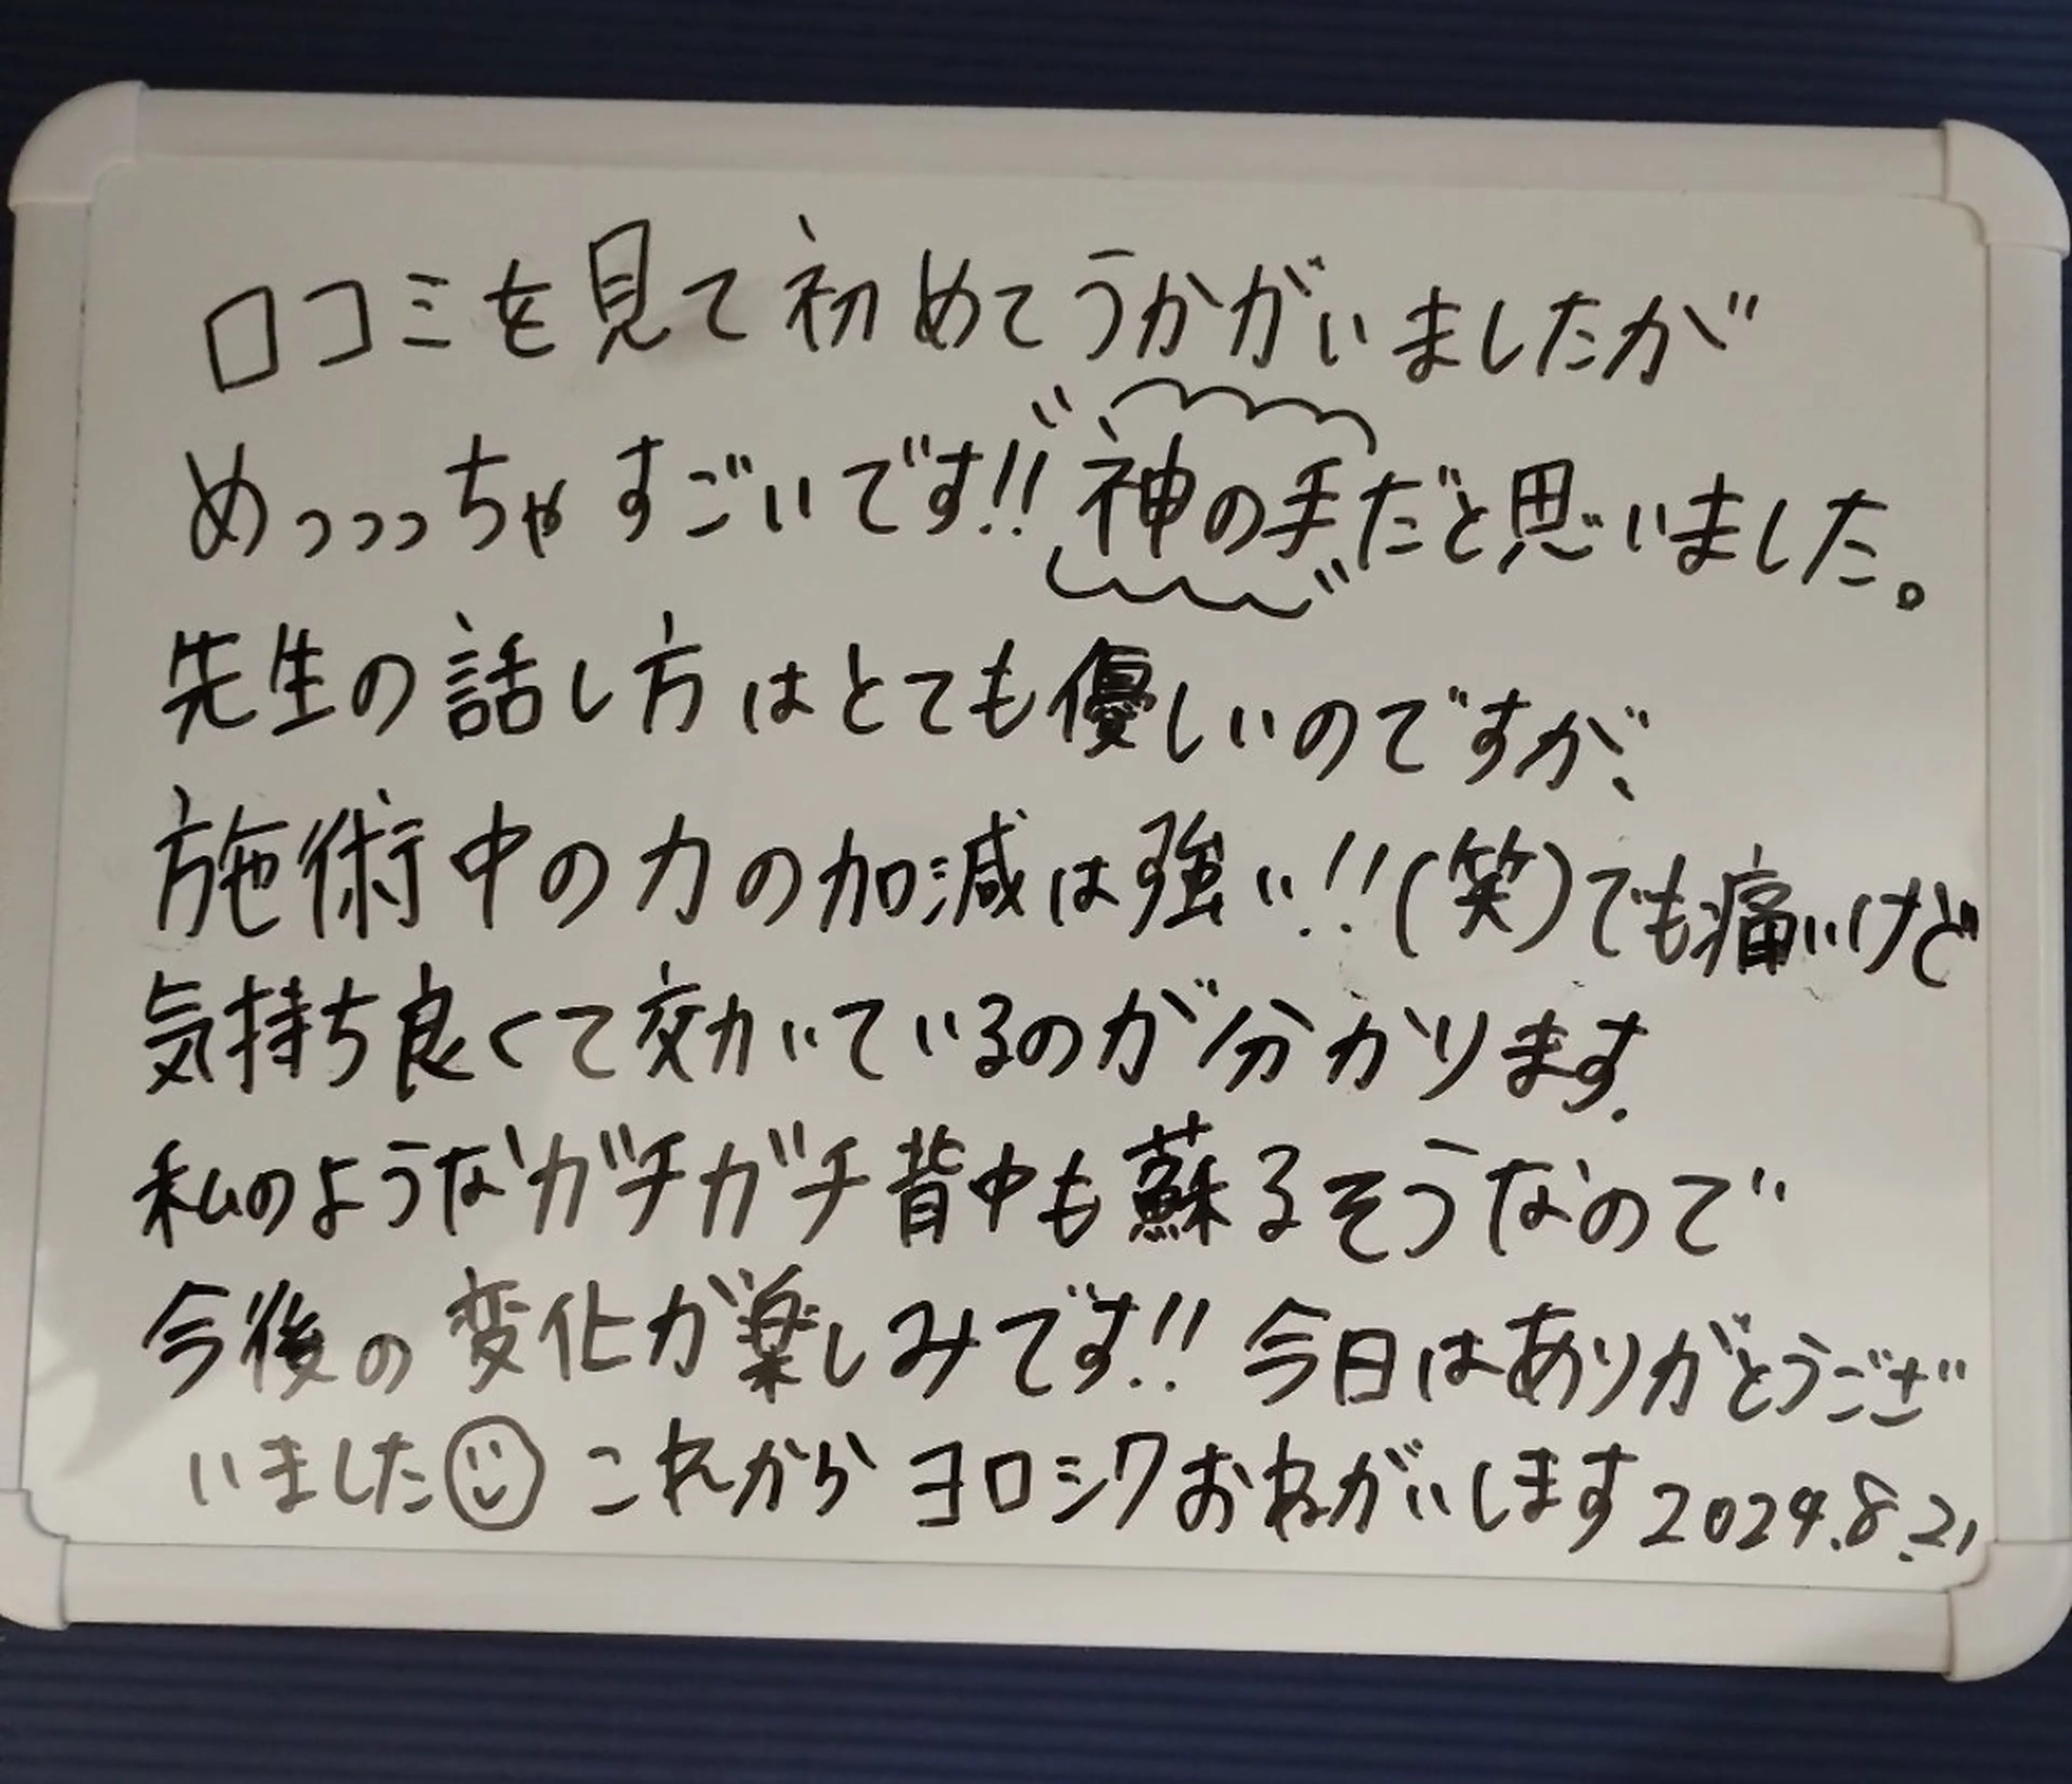 口コミを見て初めてうかがいましたが
めっっっちゃすごいです!!神の手だと思いました。
先生の話し方はとても優しいのですが、
施術中の力の加減は強い!!(笑)でも痛いけど
気持ち良くて効いているのが分かります.
私のようなガチガチ背中も蘇るそうなので
今後の変化が楽しみです!!今日はありがとうござ
いました☺これからヨロシクおねがいします2024.8.21